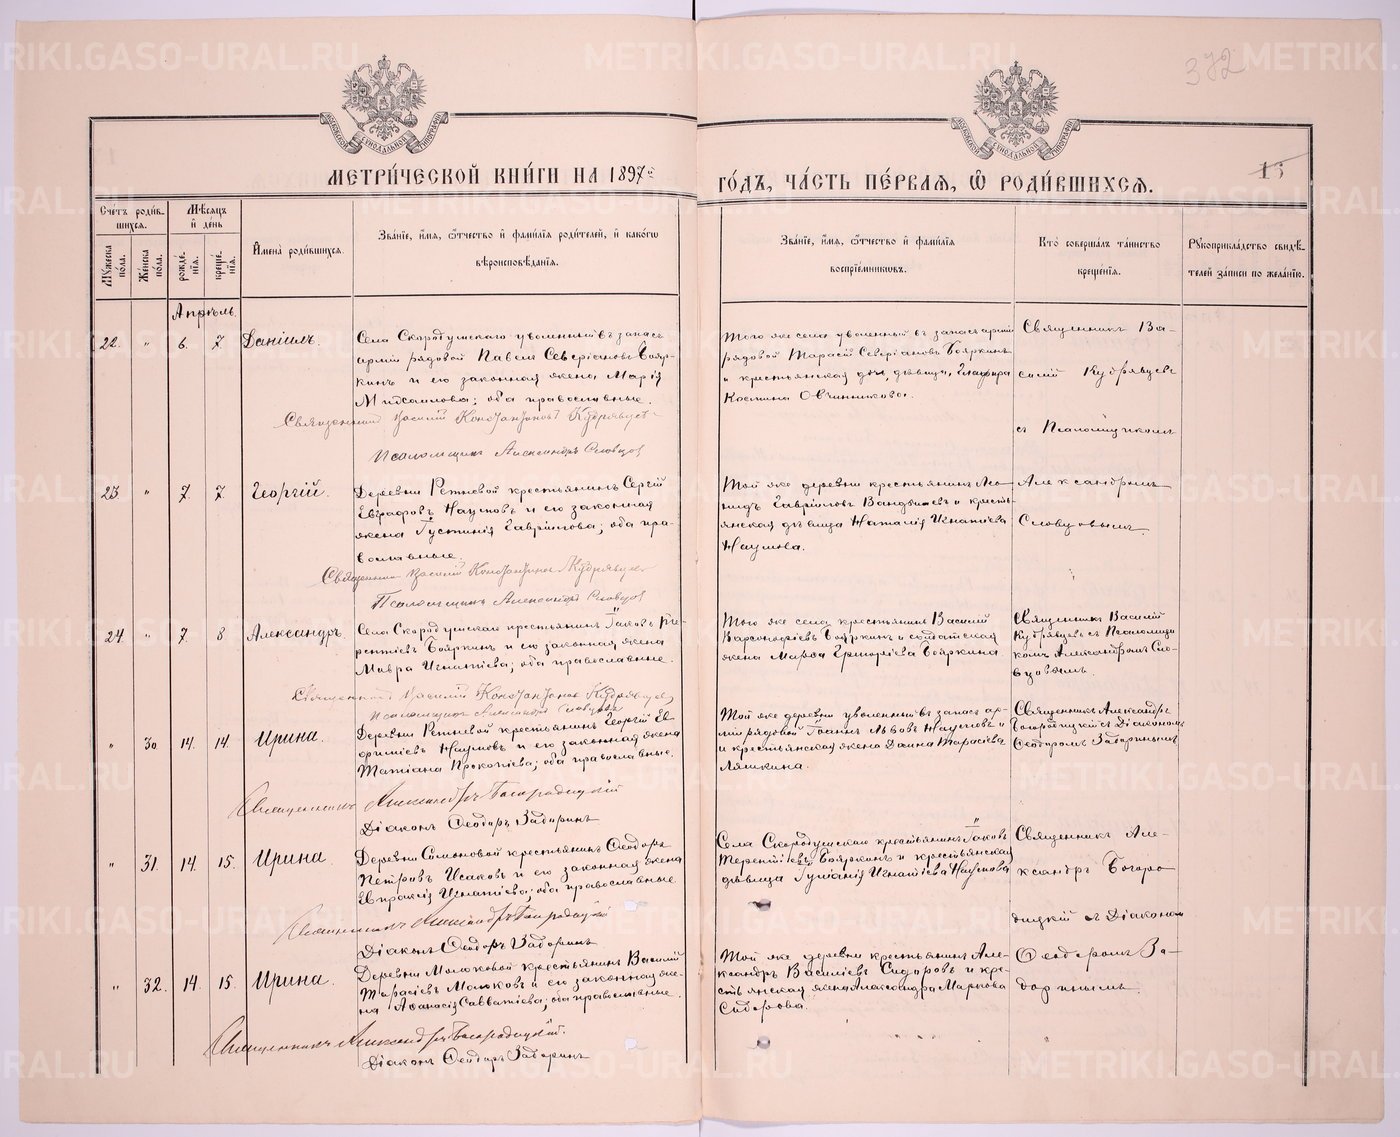 372
МЕТРИ́ЧЕСКОЙ КНИ́ГИ НА 1897й
ГО́ДЪ, ЧА́СТЬ ПЕ́РВАЯ, Ѡ РОДИ́ВШИХСЯ.
13
Сче́тъ роди́в-
шихся.
Мѣсяцъ
и де́нь
Му́жеска
по́ла.
Же́нска
по́ла.
рожде́-
нія.
креще́-
нія.
Имена̀ роди́вшихся.
Зва́ніе, и́мя, ѻ́тчество и фами́лія роди́телей, и како́гѡ
вѣроисповѣ́данія.
Зва́ніе, и́мя, ѻ́тчество и фами́лія
воспріе́мниковъ.
Кто̀ соверша́лъ та́инство
креще́нія.
Рукоприкла́дство свидѣ́-
телей за́писи по жела́нію.
Апрѣль.
22. " 6. 7 Даніилъ.
Села Скородумскаго уволенный въ запасъ
арміи рядовой Павелъ Северіановъ Бояр-
кинъ и его законная жена Марія
Михаилова; оба православные.
Священникъ Василій Константиновъ Кудрявцевъ
Псаломщикъ Александръ Словцовъ
Того же села уволенный въ запасъ арміи
рядовой Тарасій Северіановъ Бояркинъ
и крестьянская дочь, дѣвица, Глафира
Космина Овчинникова.
Священникъ Ва-
силій Кудрявцевъ
съ Псаломщикомъ
Александромъ
Словцовымъ
23 " 7. 7 Георгій.
Деревни Ретневой крестьянинъ Сергій
Евграфовъ Наумовъ и его законная
жена Іустинія Гавріилова; оба пра-
вославные.
Священникъ Василій Константиновъ Кудрявцевъ
Псаломщикъ Александръ Словцовъ
Той же деревни крестьянинъ Лео-
нидъ Гавріиловъ и кресть-
янская дѣвица Наталія Игнатіева
Наумова.
24. " 7. 8 Александръ
Села Скородумскаго крестьянинъ Іаковъ Те-
рентіевъ Бояркинъ и его законная жена
Мавра Игнатіева; оба православные.
Священникъ Василій Константиновъ Кудрявцевъ
Псаломщикъ Александръ Словцовъ
Того же села крестьянинъ Василій
Варсонофіевъ Бояркинъ и солдатская
жена Марѳа Григоріева Бояркина.
Священникъ Василій
Кудрявцевъ съ Псаломщи-
комъ Александромъ Сло-
вцовымъ.
" 30 14. 14. Ирина.
Деревни Ретневой крестьянинъ Георгій Ев-
фиміевъ Наумовъ и его законная жена
Татіана Прокопіева; оба православные.
Священникъ Александръ Богородицкій
Діаконъ Ѳеодоръ Задоринъ
Той же деревни уволенный въ запасъ ар-
міи рядовой Іоаннъ Львовъ Наумовъ и
и крестьянская жена Домна Тарасіева
Ляпкина.
Священникъ Александръ
Богородицкій съ Діакономъ
Ѳеодоромъ Задоринымъ
" 31. 14. 15. Ирина.
Деревни Симоновой крестьянинъ Ѳеодоръ
Петровъ Исаковъ и его законная жена
Евпраксія Игнатіева; оба православные.
Священникъ Александръ Богородицкій
Діаконъ Ѳеодоръ Задоринъ
Села Скородумскаго крестьянинъ Іаковъ
Терентіевъ Бояркинъ и крестьянская
дѣвица Іуліанія Игнатіева Наумова
Священникъ Але-
ксандръ Богоро-
дицкій съ Діакономъ
Ѳеодоромъ За-
доринымъ.
" 32. 14. 15. Ирина.
Деревни Молоковой крестьянинъ Василій
Тарасіевъ Молоковъ и его законная же-
на Аѳанасія Савватіева; оба православные.
Священникъ Александръ Богородицкій.
Діаконъ Ѳеодоръ Задоринъ
Той же деревни крестьянинъ Але-
ксандръ Василіевъ Сидоровъ и кре-
стьянская жена Александра Маркова
Сидорова.